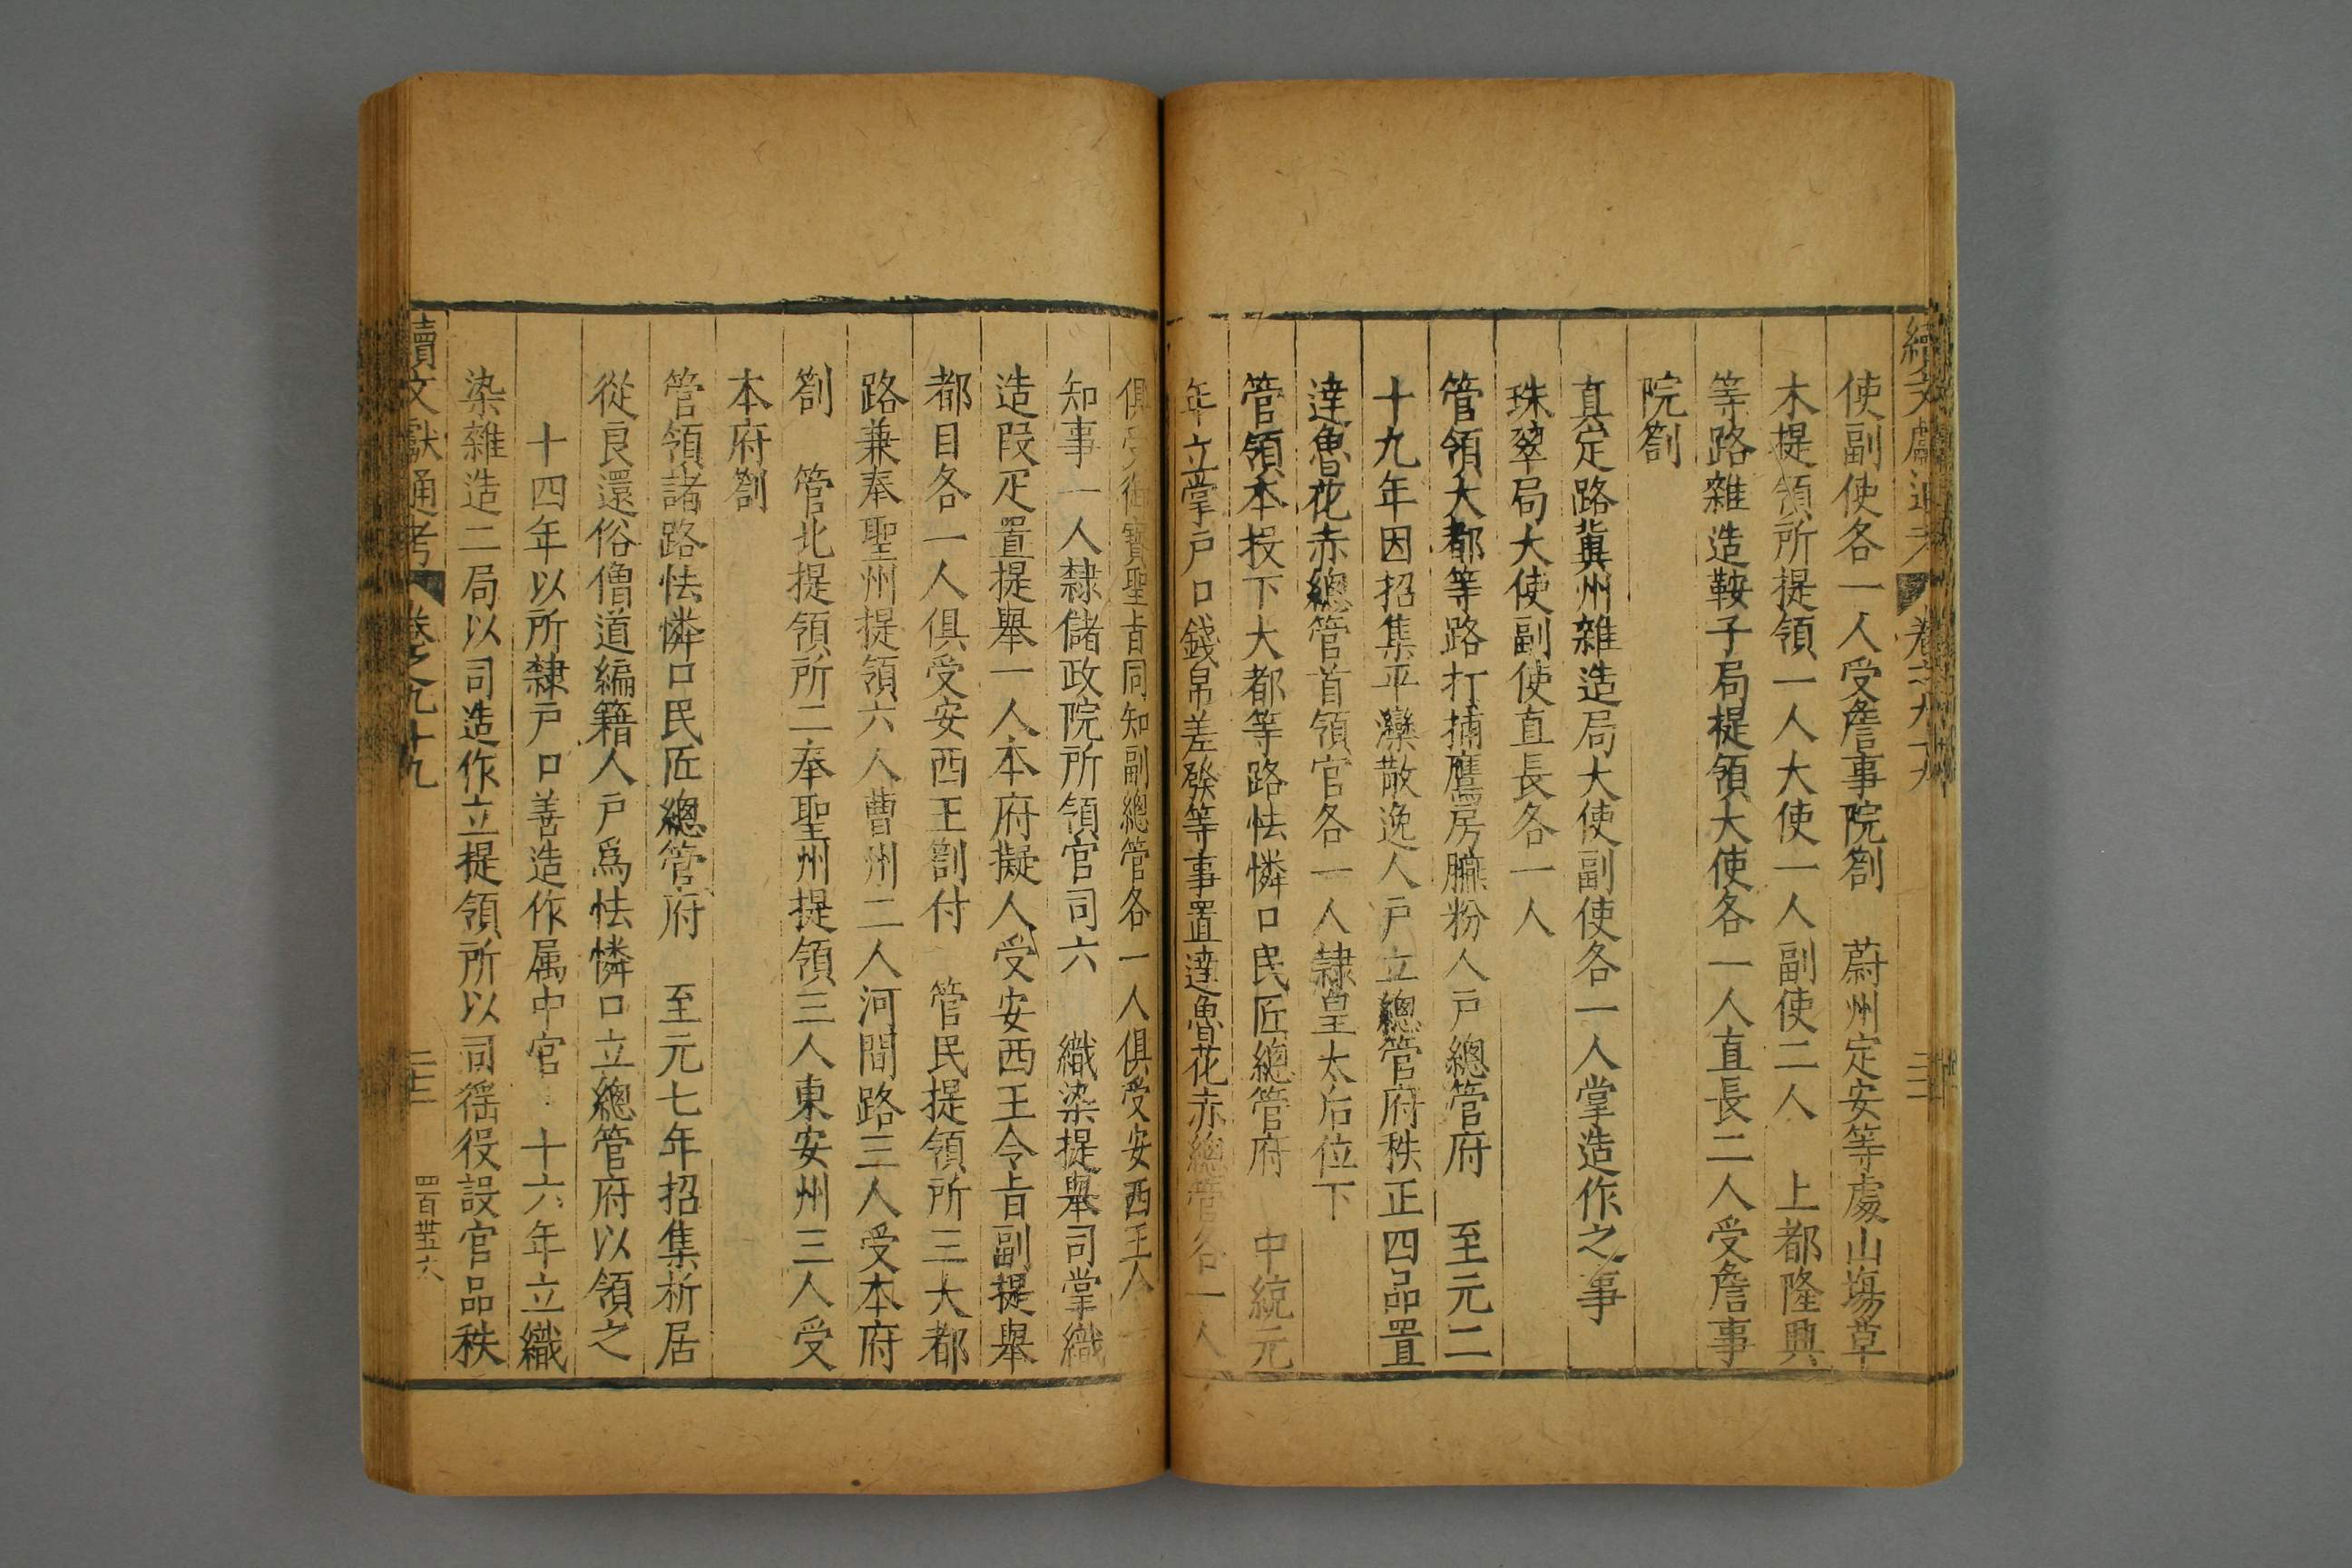 使副使各一人受詹事院劄　蔚州定安等處山場草
木提領所提領一人大使一人副使二人　上都隆興
等路雜造鞍子局提領大使各一人直長二人受詹事
院劄
真定路冀州雜造局大使副使各一人掌造作之事
珠翠局大使副使直長各一人
管領大都等路打捕鷹房臙粉人戶總管府　至元二
十九年因招集平灤散逸人戶立總管府秩正四品置
達魯花赤總管首領官各一人隸皇太后位下
管領本投下大都等路怯憐口民匠總管府　中統元
年立掌戶口錢帛差發等事置達魯花赤總管各一人
俱受御寳聖旨同知副總管各一人俱受安西王令
知事一人隸儲政院所領官司六　織染提舉司掌織
造段疋置提舉一人本府擬人受安西王令旨副提舉
都目各一人俱受安西王劄付　管民提領所三大都
路兼奉聖州提領六人曹州二人河間路三人受本府
劄　管北提領所二奉聖州提領三人東安州三人受
本府劄
管領諸路怯憐口民匠總管府　至元七年招集析居
從良還俗僧道編籍人戶爲怯憐口立總管府以領之
十四年以所隸戶口善造作属中宫　十六年立織
染雜造二局以司造作立提領所以司徭役設官品秩
續文獻通考　卷之九十九　二十二　四百卅五六